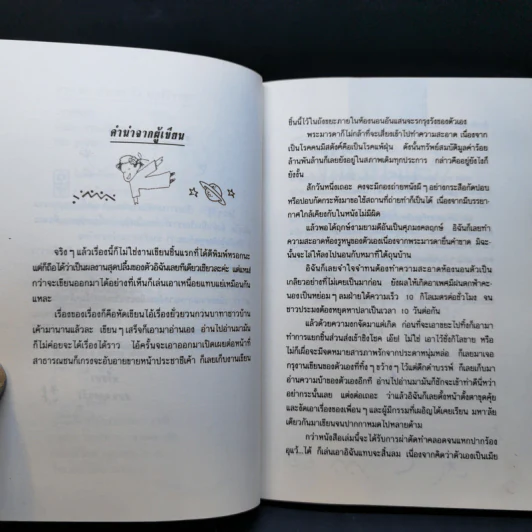 คำนำจากผู้เขียน
จริงๆ แล้วเรื่องนี้ก็ไม่ใช่งานเขียนชิ้นแรกที่ได้ตีพิมพ์หรอกนะ
แต่ก็ถือได้ว่าเป็นผลงานสุดปลื้มของตัวอิฉันเลยทีเดียวเชียวละค่ะ แต่แหม
กว่าจะเขียนออกมาได้อย่างที่เห็นก็เล่นเอาเหนื่อยแทบแย่เหมือนกัน
แหละ
เรื่องของเรื่องก็คือหัดเขียนไอ้เรื่องยั่วยวนกวนบาทาชาวบ้าน
เค้ามานานแล้วละ เขียนๆ เสร็จก็เอามาอ่านเอง อ่านไปอ่านมามัน
ก็ไม่ค่อยจะได้เรื่องได้ราว ไอ้ครั้นจะเอาออกมาเปิดเผยต่อหน้าที่
สาธารณชนก็เกรงจะอับอายขายหน้าประชาชีเค้า ก็เลยเก็บงานเขียน
ชิ้นนี้ไว้ในถังขยะภายในห้องนอนอันแสนจะรกรุงรังของตัวเอง
พระมารดาก็ไม่กล้าที่จะเสี่ยงเข้าไปทำความสะอาด เนื่องจาก
เป็นโรคคนมีสตังค์คือเป็นโรคแพ้ฝุ่น ดังนั้นทรัพย์สมบัติมูลค่าร้อย
ล้านพันล้านก็เลยยังอยู่ในสภาพเดิมทุกประการ กล่าวคืออยู่ยังไงก็
ยังงั้น
สักวันหนึ่งเถอะ คงจะมีกองถ่ายหนังผีๆ อย่างกระสือกัดปอบ
หรือปอบกัดกระหังมาขอใช้สถานที่ถ่ายทำก็เป็นได้ เนื่องจากมีบรรยา
กาศใกล้เคียงกับในหนังไม่มีผิด
แล้วพอได้ฤกษ์งามยามดีอันเป็นศุภมงคลฤกษ์ อิฉันก็เลยทำ
ความสะอาดห้องรูหนูของตัวเองเนื่องจากพระมารดายื่นคำขาด มิฉะ
นั้นจะไล่ให้ลงไปนอนกับหมาที่ใต้ถุนบ้าน
อิฉันก็เลยจำใจจำทนต้องทำความสะอาดห้องนอนตัวเป็น
เกลียวอย่างที่ไม่เคยเป็นมาก่อน ยังผลให้เกิดอาเพศมีฝนตกฟ้าคะ
นองเป็นหย่อมๆ ลมฝ่ายใต้ความเร็ว 10 กิโลเมตรต่อชั่วโมง จน
ชาวประมงต้องหยุดหาปลาเป็นเวลา 10 วันต่อกัน
แล้วด้วยความงกจัดมาแต่เกิด ก่อนที่จะเอาขยะไปทิ้งก็เอามา
ทำการแยกชิ้นส่วนส่งเข้าชิงโชค เอ้ย! ไม่ใช่ เอาไว้ชั่งกิโลขาย หรือ
ไม่ก็เผื่อจะมีจดหมายสารภาพรักจากประดาหนุ่มหล่อ ก็เลยมาเจอ
กรุงานเขียนของตัวเองที่ทิ้งๆ ขว้างๆ ไว้แต่ดึกดำบรรพ์ ก็เลยเก็บมา
อ่านความบ้าของตัวเองอีกที อ่านไปอ่านมามันก็ชักจะเข้าท่าดีนี่หว่า
อย่ากระนั้นเลย แต่งต่อเถอะ ว่าแล้วอิฉันก็เลยตั้งหน้าตั้งตาขุดคุ้ย
และงัดเอาเรื่องของเพื่อนๆ และผู้มีกรรมที่เผอิญได้เคยเรียน มหา'ลัย
เดียวกันมาเขียนจนปากกาหมดไปหลายด้าม
กว่าหนังสือเล่มนี้จะได้รับการผ่าตัดทำคลอดจนแหกปากร้อง
อุแว้...ได้ ก็เล่นเอาอิฉันแทบจะสิ้นลม เนื่องจากคิดว่าตัวเองเป็นเมีย